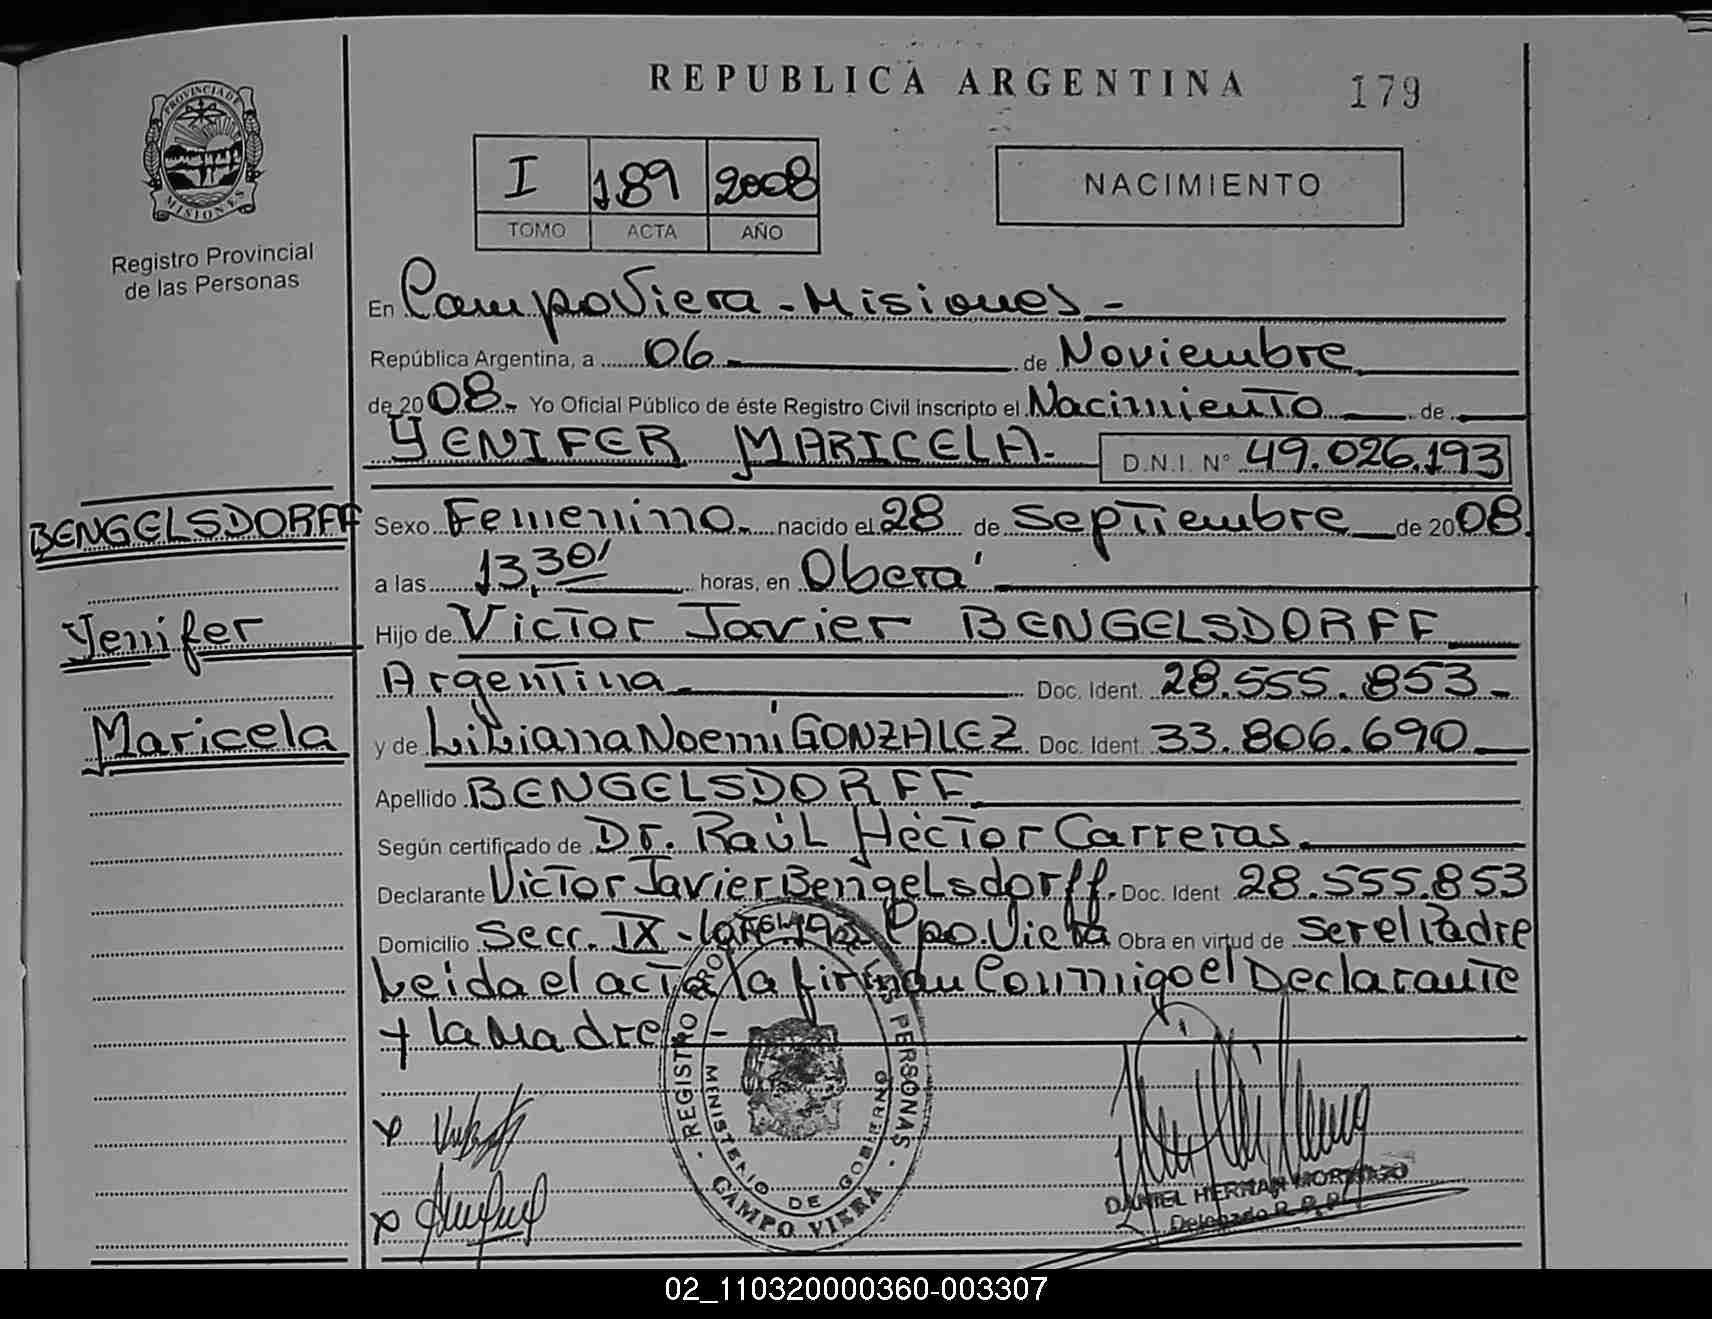 REPUBLICA ARGENTINA
179
PROVINCIA DE
MISIONES
Registro Provincial
de las Personas
I 189 2008
TOMO ACTA AÑO
NACIMIENTO
En Campo Viera - Misiones -
República Argentina, a 06 de Noviembre
de 2008. Yo Oficial Público de éste Registro Civil inscripto el Nacimiento de
YENIFER MARICELA.
D.N.I. N° 49.026.193
BENGELSDORFF
Yenifer
Maricela
Sexo Femenino. nacido el 28 de septiembre de 2008.
a las 13,30' horas, en Oberá
Hijo de Victor Javier BENGELSDORFF
Argentina Doc. Ident. 28.555.853 -
y de Liliana Noemí GONZALEZ Doc. Ident. 33.806.690
Apellido BENGELSDORFF
Según certificado de Dr. Raúl Héctor Carreras
Declarante Victor Javier Bengelsdorff. Doc. Ident 28.555.853
Domicilio Secc. IX - lote 192 Cpo. Viera Obra en virtud de ser el Padre
Leida el acta la firman Conmigo el Declarante
y la Madre -
REGISTRO DE LAS PERSONAS
MINISTERIO DE GOBIERNO
CAMPO VIERA
DANIEL HERNAN
Delegado R. P. P.
02_110320000360-003307